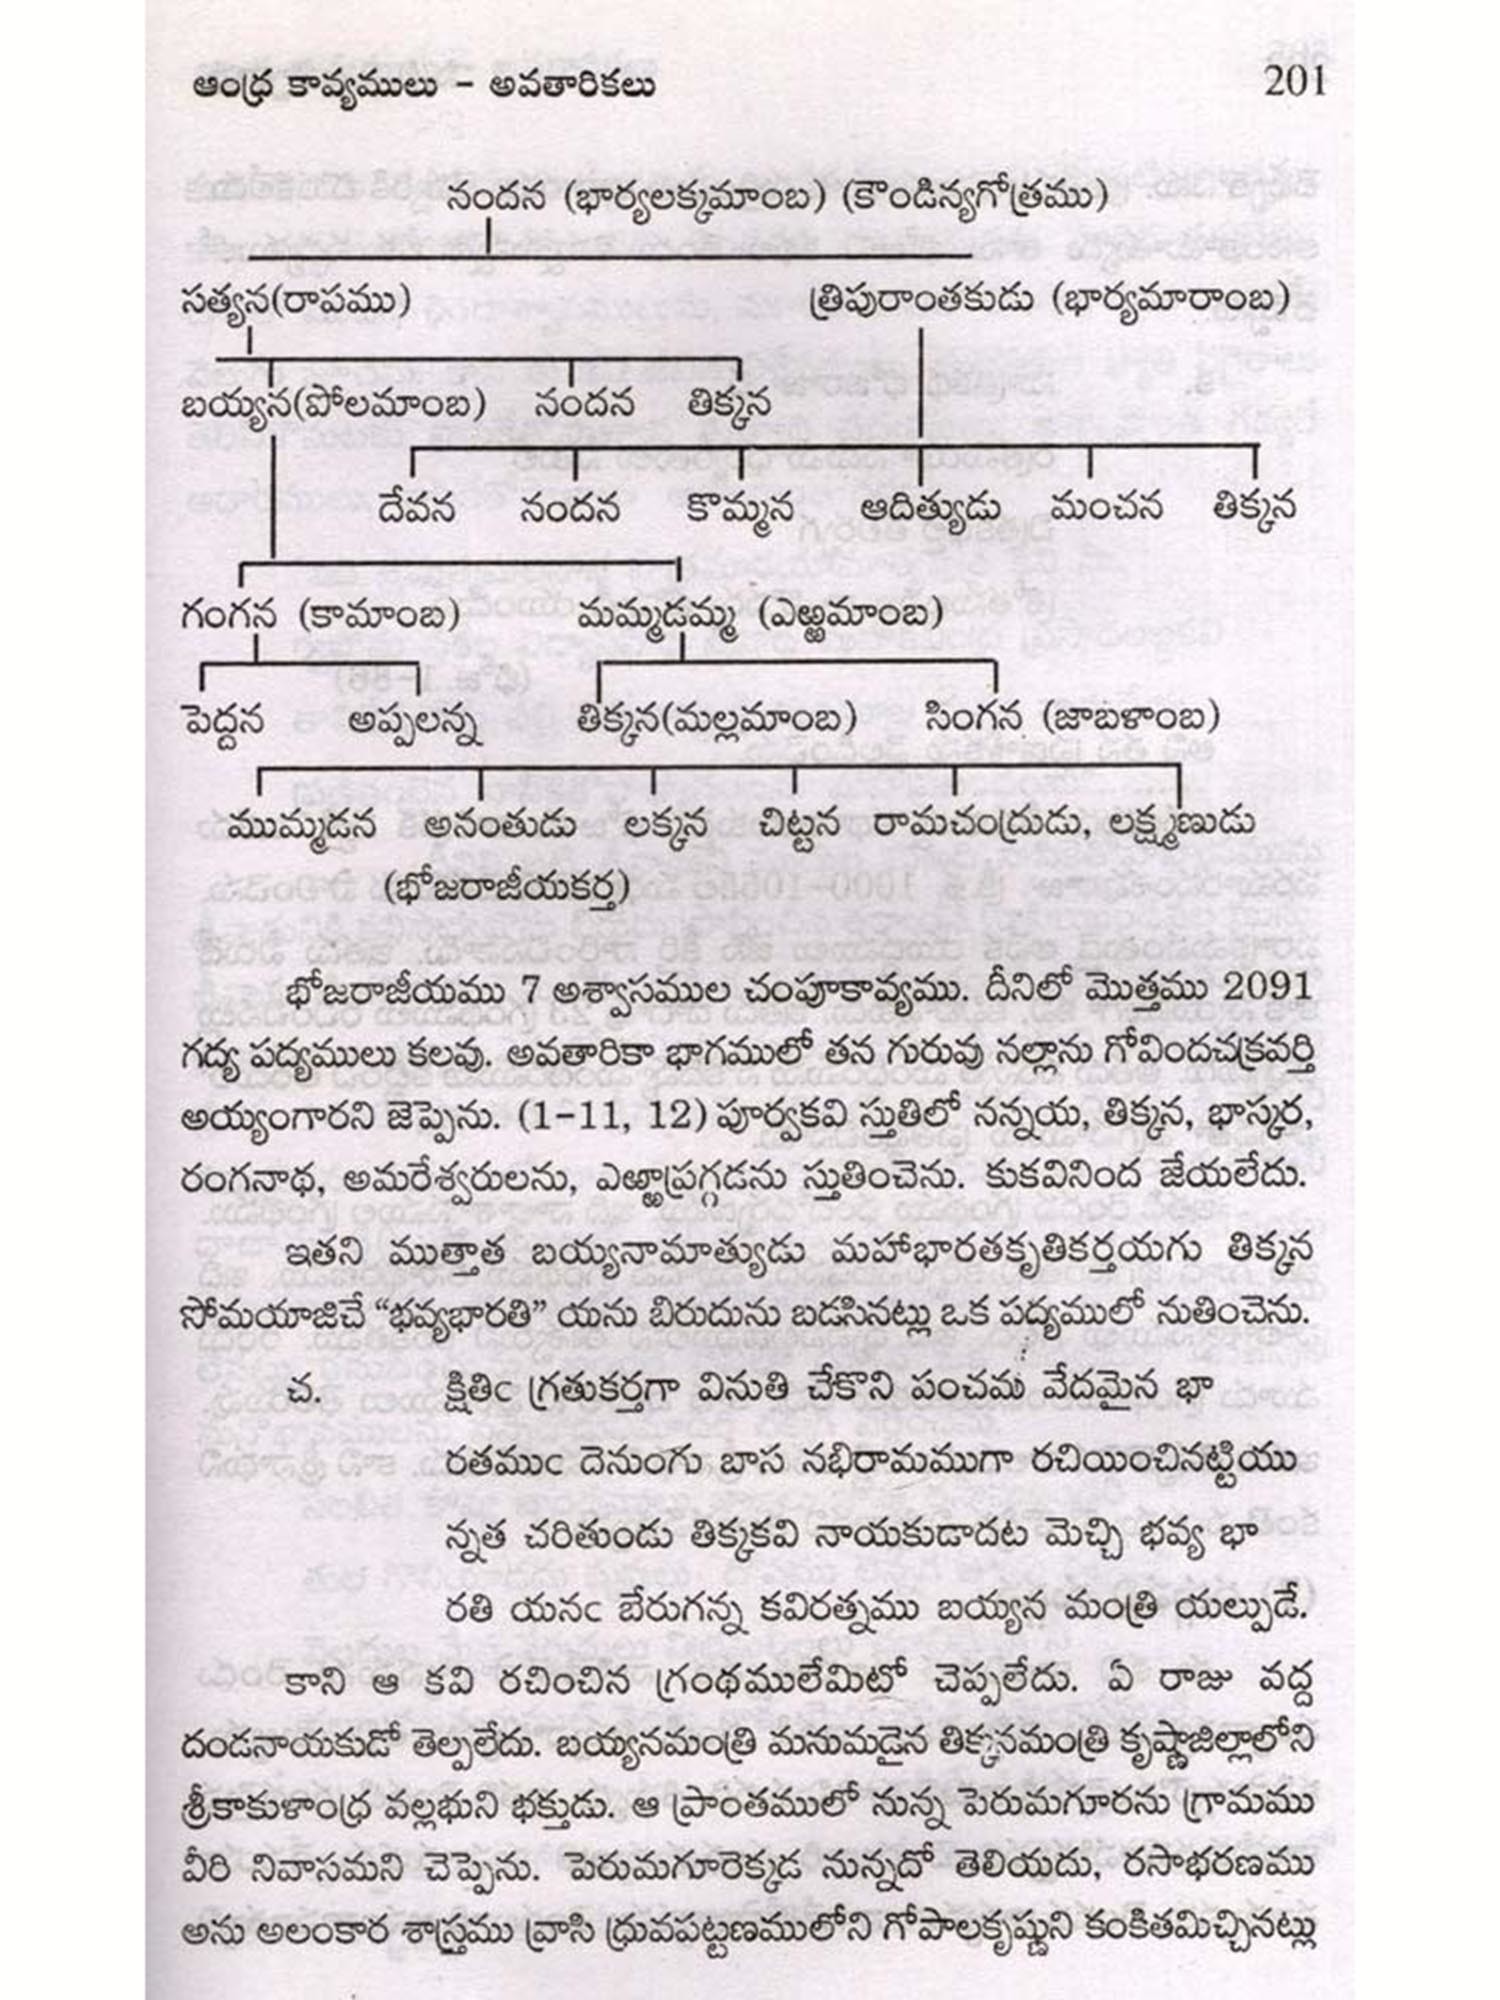 ఆంధ్ర కావ్యములు - అవతారికలు 201
నందన (భార్యలక్కమాంబ) (కౌండిన్యగోత్రము)
సత్యన(రాపము) త్రిపురాంతకుడు (భార్యమారాంబ)
బయ్యన(పోలమాంబ) నందన తిక్కన
దేవన నందన కొమ్మన ఆదిత్యుడు మంచన తిక్కన
గంగన (కామాంబ) మమ్మడమ్మ (ఎఱ్ఱమాంబ)
పెద్దన అప్పలన్న తిక్కన(మల్లమాంబ) సింగన (జాబళాంబ)
ముమ్మడన అనంతుడు లక్కన చిట్టన రామచంద్రుడు, లక్ష్మణుడు
(భోజరాజీయకర్త)
భోజరాజీయము 7 అశ్వాసముల చంపూకావ్యము. దీనిలో మొత్తము 2091
గద్య పద్యములు కలవు. అవతారికా భాగములో తన గురువు నల్లాను గోవిందచక్రవర్తి
అయ్యంగారని జెప్పెను. (1-11, 12) పూర్వకవి స్తుతిలో నన్నయ, తిక్కన, భాస్కర,
రంగనాథ, అమరేశ్వరులను, ఎఱ్ఱాప్రగ్గడను స్తుతించెను. కుకవినింద జేయలేదు.
ఇతని ముత్తాత బయ్యనామాత్యుడు మహాభారతకృతికర్తయగు తిక్కన
సోమయాజిచే “భవ్యభారతి” యను బిరుదును బడసినట్లు ఒక పద్యములో నుతించెను.
చ. క్షితిఁ గ్రతుకర్తగా వినుతి చేకొని పంచమ వేదమైన భా
రతముఁ దెనుంగు బాస నభిరామముగా రచియించినట్టియు
న్నత చరితుండు తిక్కకవి నాయకుడాదట మెచ్చి భవ్య భా
రతి యనఁ బేరుగన్న కవిరత్నము బయ్యన మంత్రి యల్పుడే.
కాని ఆ కవి రచించిన గ్రంథములేమిటో చెప్పలేదు. ఏ రాజు వద్ద
దండనాయకుడో తెల్పలేదు. బయ్యనమంత్రి మనుమడైన తిక్కనమంత్రి కృష్ణాజిల్లాలోని
శ్రీకాకుళాంధ్ర వల్లభుని భక్తుడు. ఆ ప్రాంతములో నున్న పెరుమగూరను గ్రామము
వీరి నివాసమని చెప్పెను. పెరుమగూరెక్కడ నున్నదో తెలియదు, రసాభరణము
అను అలంకార శాస్త్రము వ్రాసి ధ్రువపట్టణములోని గోపాలకృష్ణుని కంకితమిచ్చినట్లు